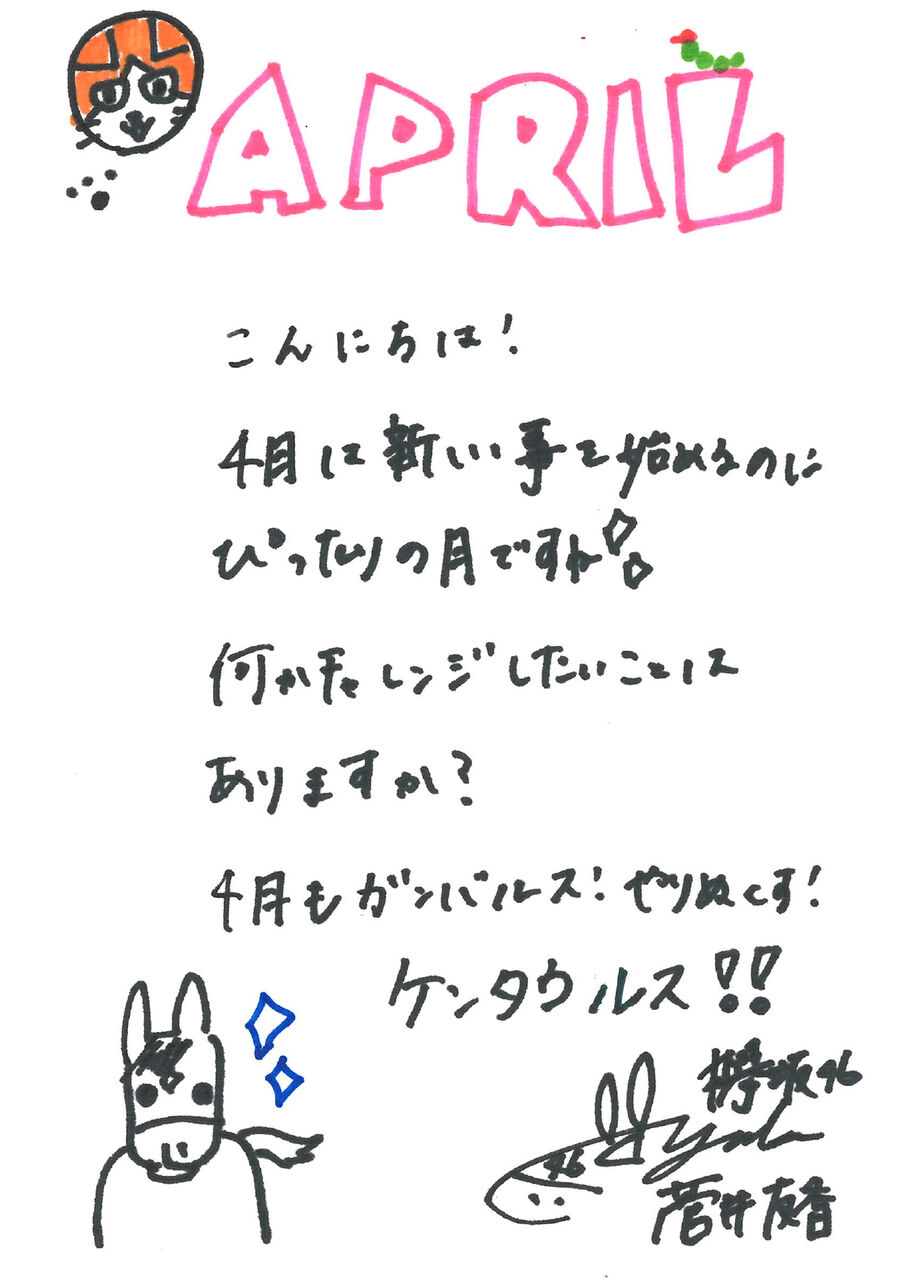 APRIL
こんにちは!
4月は新しい事を始めるのに
ぴったりの月ですね!
何かチャレンジしたいことは
ありますか?
4月もガンバルス! やりぬくす!
ケンタウルス!!
欅坂46
46
菅井友香